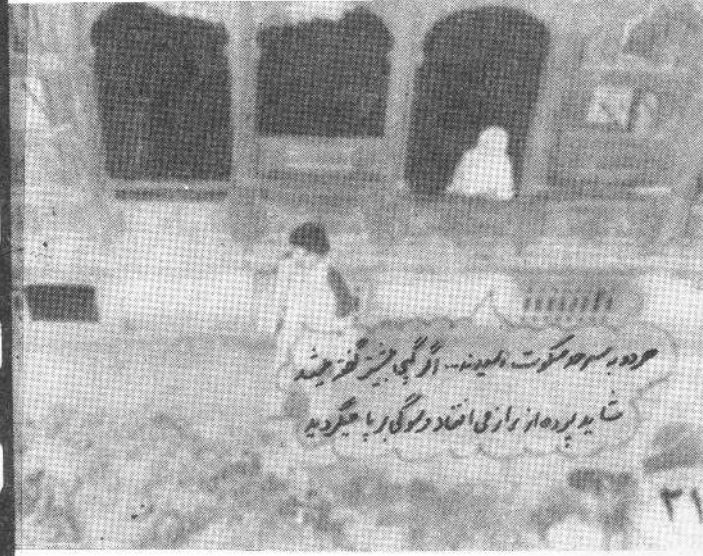 هردو به سرحد سکوت رسیدند... اگر گپی بیشتر گفته میشد
شاید پرده از راز می افتاد و سوگی برپا میگردید
۲۱